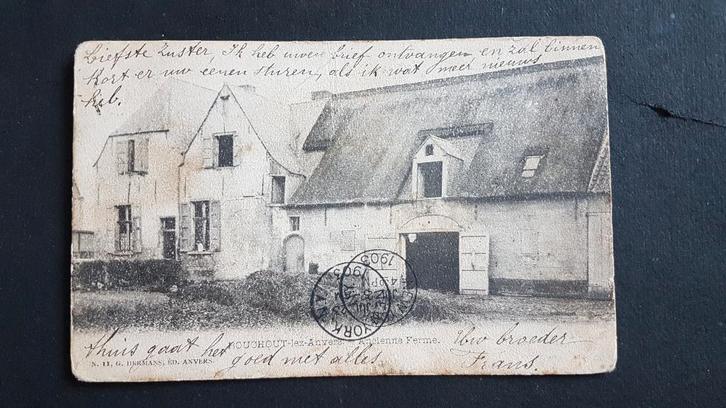 Liefste Zuster, Ik heb uwen brief ontvangen en zal binnen
kort er uw eenen sturen, als ik wat meer nieuws
heb.
BOUCHOUT-lez-Anvers Ancienne Ferme.
Thuis gaat het goed met alles.
Uw broeder
Frans.
N. 11, G. HERMANS, ÉD. ANVERS.
YORK
1903
1903